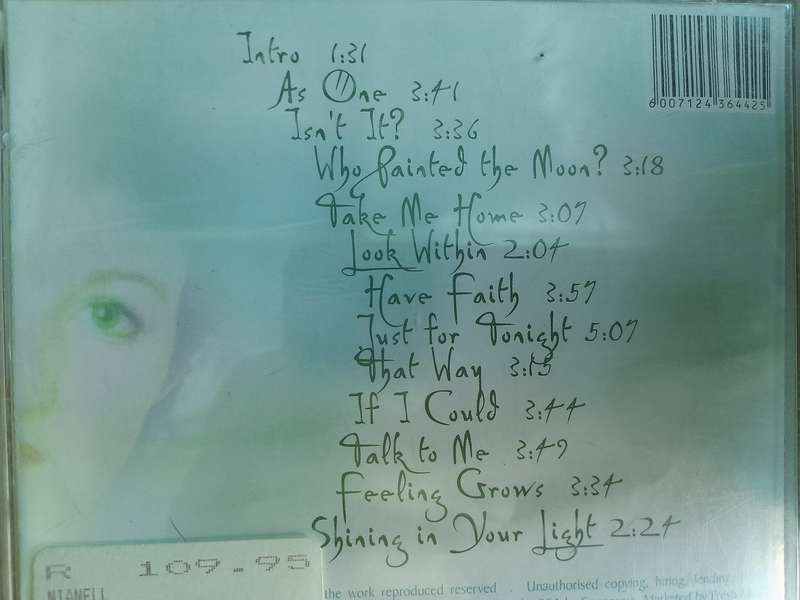 Intro 1:31
As One 3:41
Isn't It? 3:36
Who Painted the Moon? 3:18
Take Me Home 3:07
Look Within 2:04
Have Faith 3:57
Just for Tonight 5:07
That Way 3:15
If I Could 3:44
Talk to Me 3:49
Feeling Grows 3:34
Shining in Your Light 2:24
6007124 364425
R 109.95
NIANELL
the work reproduced reserved . Unauthorised copying, hiring, lending,
Marketed by